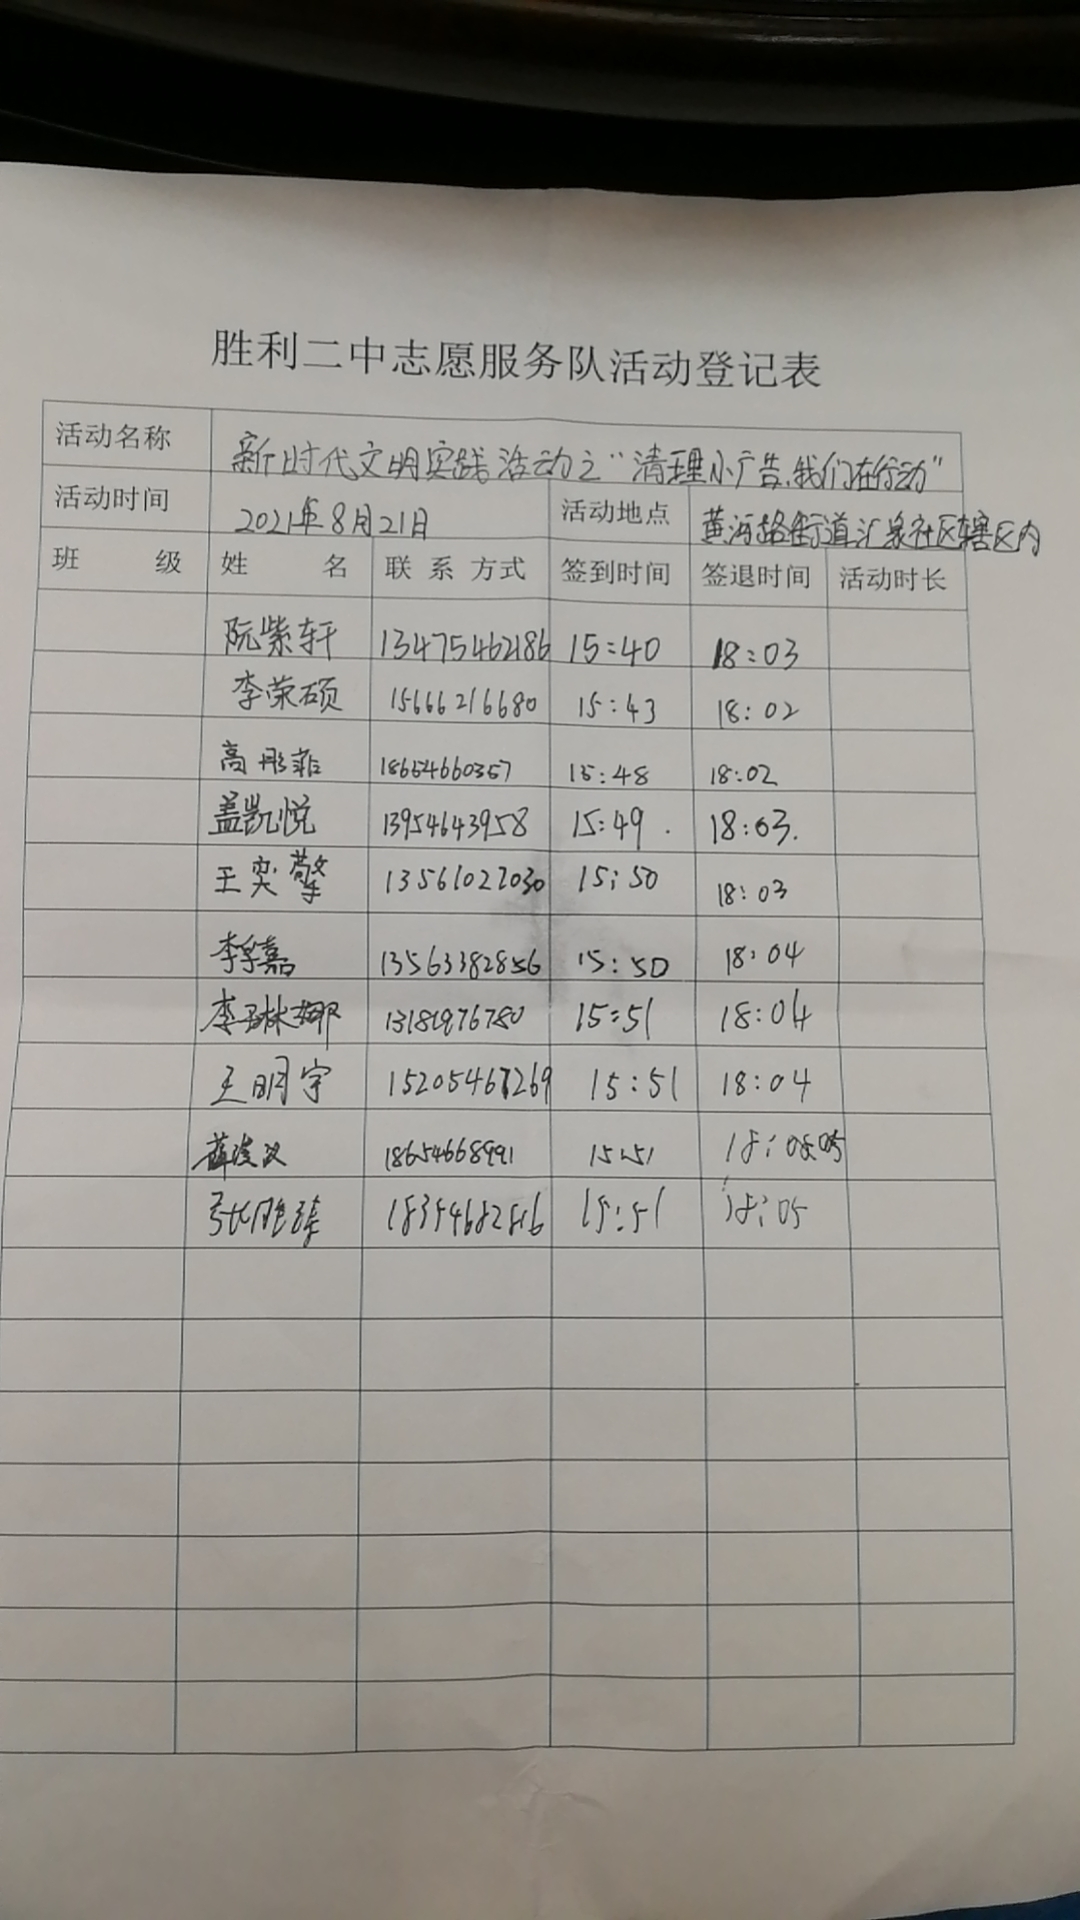 胜利二中志愿服务队活动登记表
活动名称 新时代文明实践活动之“清理小广告,我们在行动”
活动时间 2021年8月21日 活动地点 黄河路街道汇泉社区辖区内
班 级 姓 名 联系方式 签到时间 签退时间 活动时长
阮紫轩 13475462186 15:40 18:03
李荣硕 15666216680 15:43 18:02
高彤菲 18654660357 15:48 18:02
盖凯悦 13954643958 15:49. 18:03.
王奕擎 13561027030 15:50 18:03
李孚嘉 13563382856 15:50 18:04
李琳娜 13181976780 15:51 18:04
王明宇 15205467269 15:51 18:04
薛 18654668991 15:51 18:05
张 18354682816 15:51 18:05